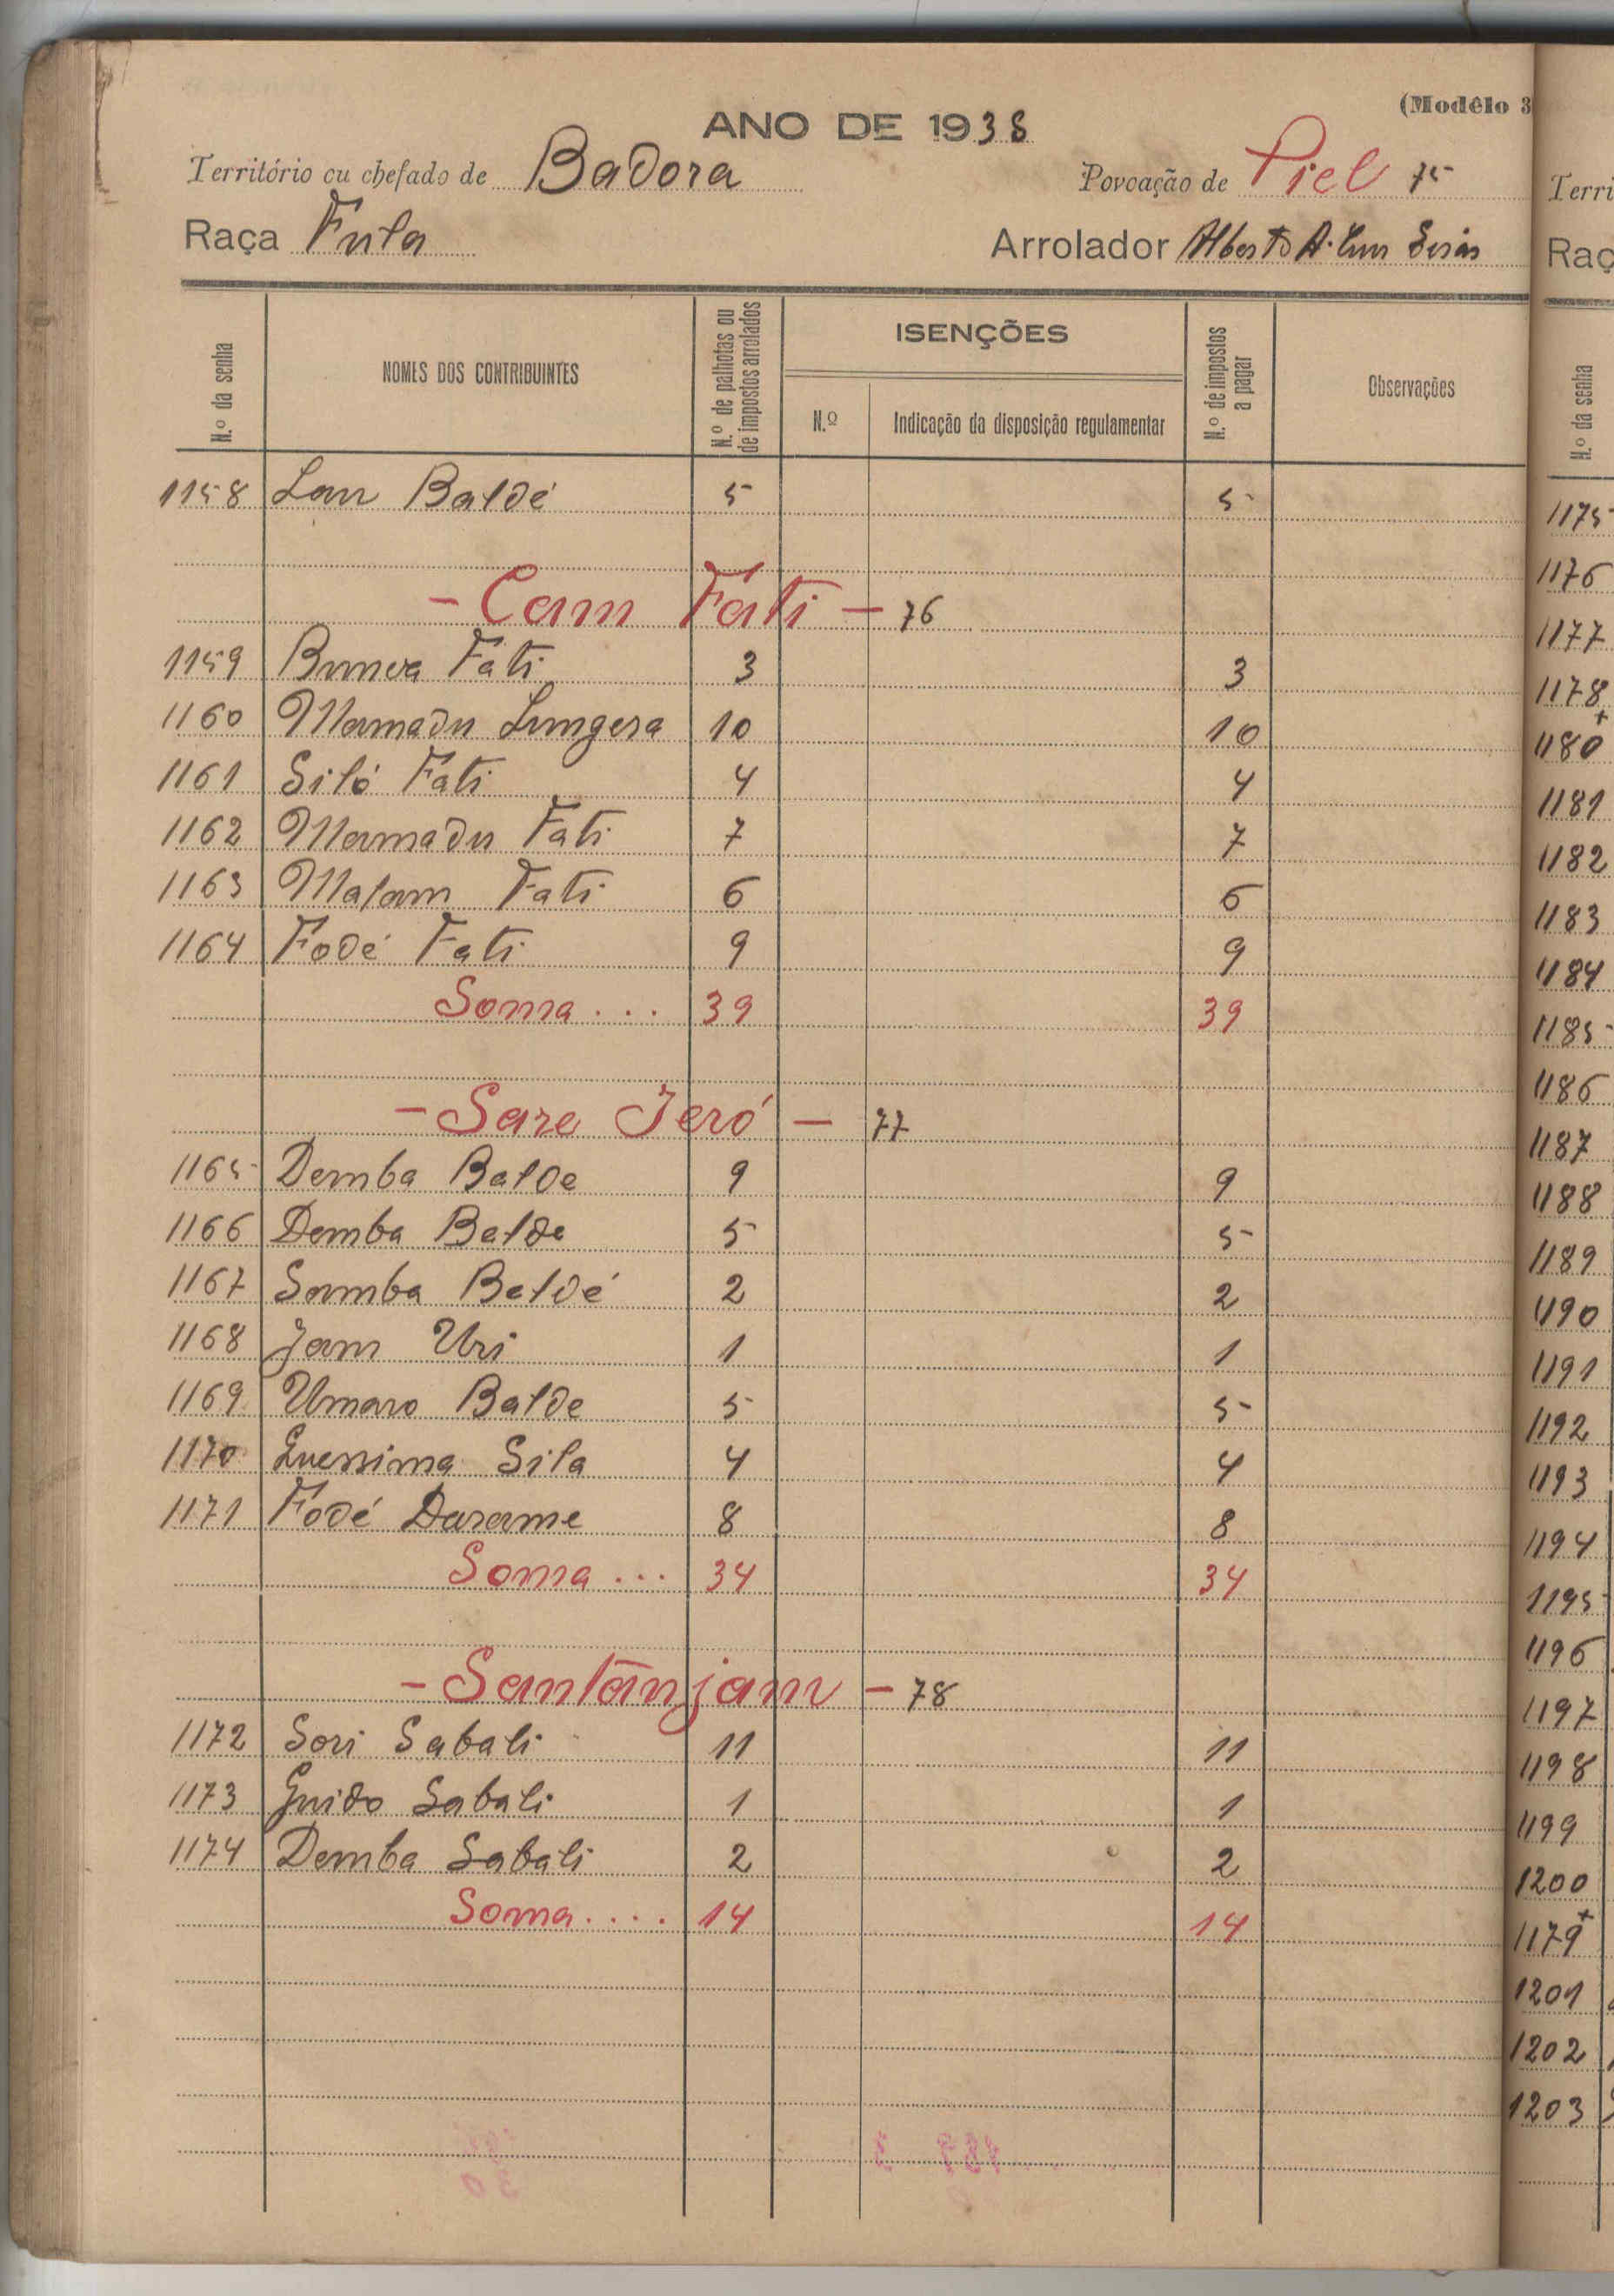 (Modêlo 3
ANO DE 1938
Território ou chefado de Badora Povoação de Piel 75
Raça Fula Arrolador Alberto A.
N.º da senha NOMES DOS CONTRIBUINTES N.º de palhotas ou de impostos arrolados ISENÇÕES N.º Indicação da disposição regulamentar N.º de impostos a pagar Observações
1158 Lau Baldé 5 5
- Cam Fati - 76
1159 Fáti 3 3
1160 Mamadu 10 10
1161 Siló Fati 4 4
1162 Mamadu Fati 7 7
1163 Malam Fati 6 6
1164 Fodé Fati 9 9
Soma ... 39 39
- Sare Jeró - 77
1165 Demba Balde 9 9
1166 Demba Balde 5 5
1167 Samba Baldé 2 2
1168 Jam Uri 1 1
1169 Umaro Balde 5 5
1170 Sila 4 4
1171 Fodé Darame 8 8
Soma ... 34 34
- Santanjam - 78
1172 Sori Sabali 11 11
1173 Guido Sabali 1 1
1174 Demba Sabali 2 2
Soma .... 14 14
Terri
Raç
N.º da senha
1175
1176
1177
1178
1180+
1181
1182
1183
1184
1185
1186
1187
1188
1189
1190
1191
1192
1193
1194
1195
1196
1197
1198
1199
1200
1179+
1201
1202
1203